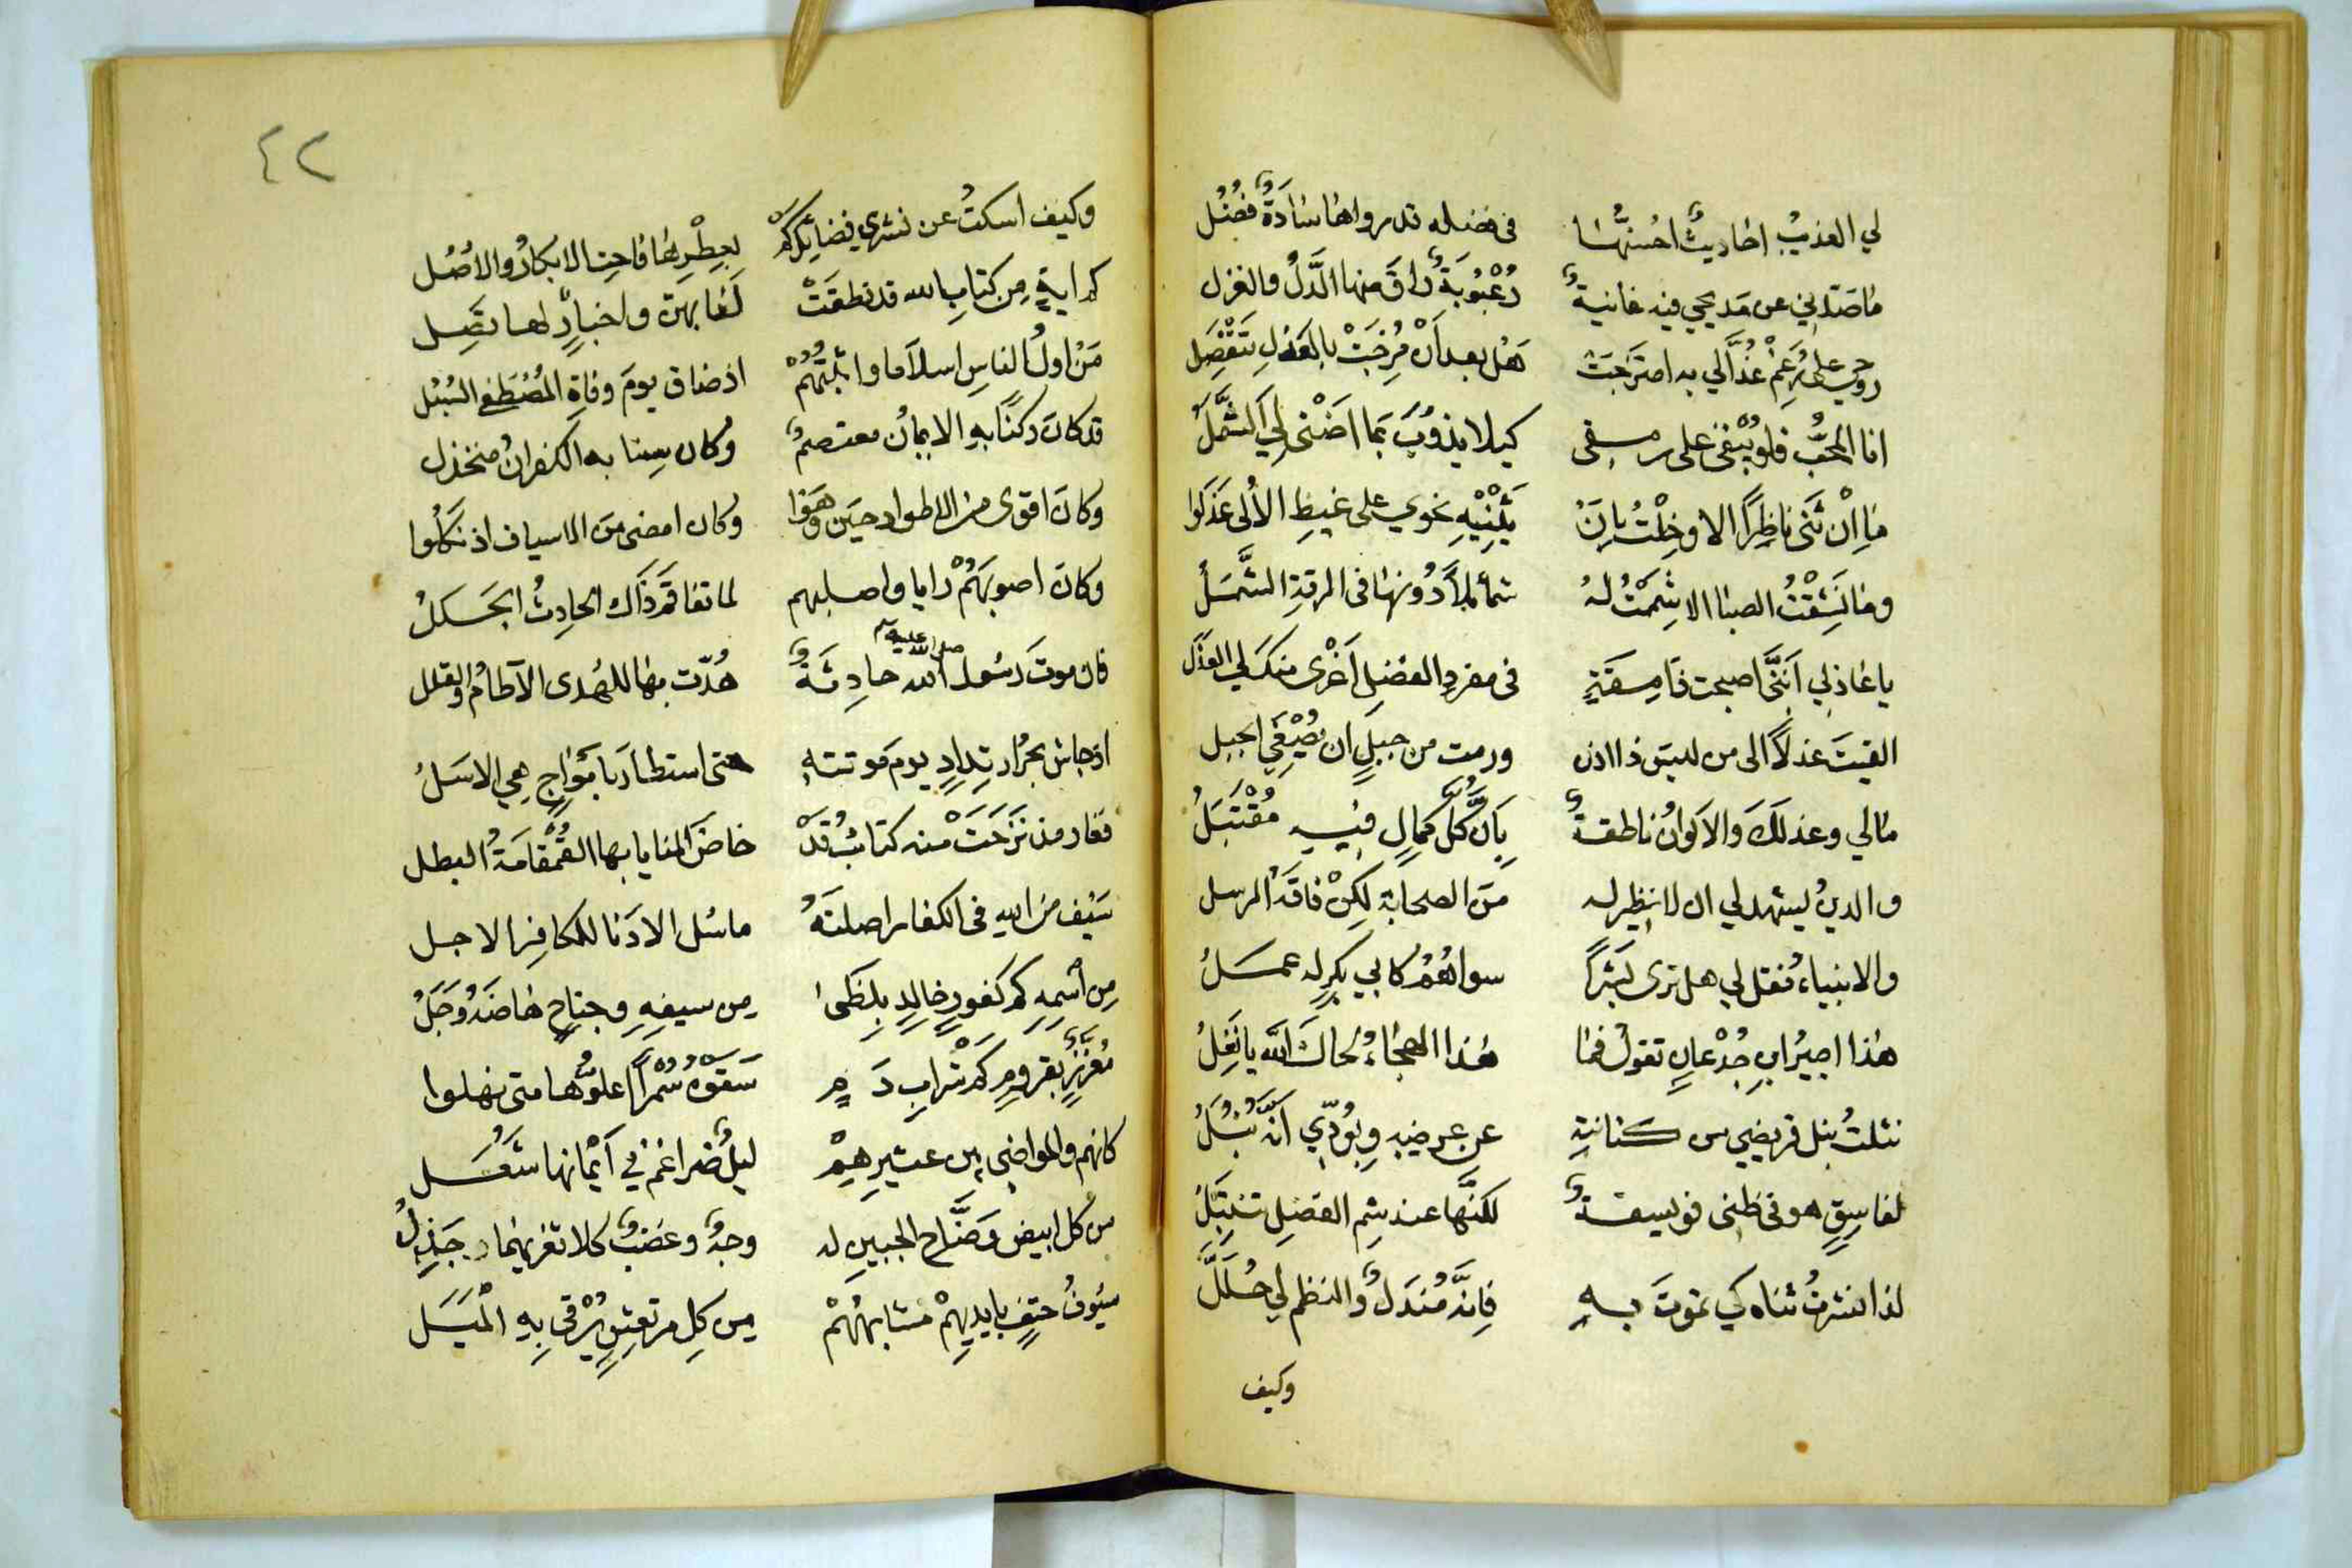 لي العذيبُ احاديثٌ احسنُها في فضله قد رواها سادةٌ فُضُل
ما صدّني عن مديحي فيه غانيةٌ رُعْبُوبَةٌ راق منها الدَّلُّ والغزل
روحي على رَغْمِ عُذَّالي به امتزجت هل بعد أن مُزِجَتْ بالعذل تنفصل
انا المحبُّ فلو يُبْقي على رمقي كيلا يذوبَ بما اضنى لي
ما اِنْ ثَنى ناظرًا الا وخِلْتُ بِاَنْ يَثْنِيْهِ نحوي على غيظِ الأُلى عَذَلوا
وما نَشِقْتُ الصبا الا شِمْتُ لهُ شمائلًا دُونها في الرقةِ الشَّمَلُ
يا عاذلي اَنَّنى اصبحت ذا مِقَةٍ في مفردِ الفضلِ اَغْرى منكَ لي العذلُ
القيتَ عذلًا الى من ليسَ ذا اذن ورمت من جبلٍ ان يُصْغِيَ الجبل
مالي وعذلَكَ والاَكوانُ ناطقةٌ بِاَنَّ كلَّ كمالٍ فيه مُقْتَبَلُ
والدينُ يشهد لي ان لا نظير له منَ الصحابة لكِنْ فاقَهُ الرسل
والانبياءُ فقل لي هل ترى بَشَرًا سواهُمُ كابي بكرٍ له عملُ
هذا اجيرُ ابنِ جُدْعانٍ تقولُ فما هذا الهجاءُ لحاكَ اللّٰه يا نَغِلُ
نثلتُ نبل قريضي من كنانتِهِ عن عرضِه وبِوُدِّي اَنَّه نُبُلُ
لفاسقٍ هو في ظني فويسقةٌ لكنَّها عند شِمِ الفضلِ
لذا نشرتُ ثناه كي تموتَ بهِ فاِنَّه مَنْدَلٌ والنظم لي حُلَلُ
وكيف
٤٢
وكيف اسكتُ عن نشري فضائلَكم بعِطْرِها فاحت الابكارُ والأُصُل
كم اٰيةٍ مِن كتابِ الله قد نطقَتْ لَها بهرت واخبارٌ لها تصل
مَنْ اولُ الناسِ اسلاما واثبتُهُمْ اذ ضاق يومَ وفاةِ المُصْطَفى السُبُل
قد كانَ ركنًا بهِ الايمانُ معتصمٌ وكان سيفا به الكفرانُ منخذل
وكانَ اقوى من الاطواد حينَ وَهَوا وكان امضى منَ الاسياف اذ نكَلُوا
وكانَ اصوبَهُمْ رايا واصلبهم لما تفاقمَ ذاك الحادِثُ الجَلَلُ
فان موتَ رسُولِ الله صلى الله عليه وسلم حادِثَةٌ هُدّت بها للهُدى الآطامُ والقلل
اذ جاش بحرُ ارتِدادٍ يومَ موتتهِ حتى استطارَ باَمْواجٍ هي الاسَلُ
فغار مذ نَزَحَتْ منه كتائبُ قَدْ خاضَ المنايا بها القُمْقامَةُ البطل
سَيْف من اللهِ في الكفار اصلتَهُ ما سُل الا دَنا للكافرِ الاجل
مِن اسْمِهِ كم كفورٍ خالدٍ بِلظَىٰ مِن سيفِهِ وجناحٍ هاضَهُ وَجَلُ
مُعزَّزٌ بقرومٍ كم شرابِ دَمٍ سَقَوْهُ سُمْرًا علوُّها متى نهلوا
كانهم والمواضي بين عثيرِهِمْ ليلٌ ضراغم في اَيْمانها شُعَل
من كل ابيض وَضَّاحِ الجبينِ له وجهٌ وعضبٌ كلا تغريهما جَذِلُ
سُيُوفُ حتفٍ بايديهِمْ مشابهُهُمْ مِن كلِ مرتعشٍ يُرْقى بِهِ الْمَيَل